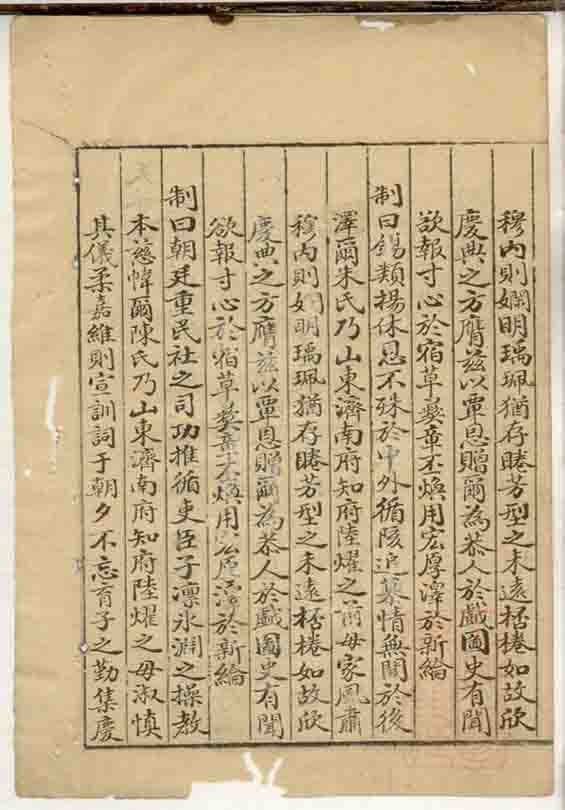 穆内則嫻明瑀珮猶存睠芳型之未遠桮棬如故欣
慶典之方膺兹以覃恩贈爾為恭人於戲圖史有聞
欲報寸心於宿草褧章丕煥用宏厚澤於新綸
制曰錫類揚休恩不殊於中外循陔追慕情無間於後
澤爾朱氏乃山東濟南府知府陸燿之前母家風肅
穆内則嫻明瑀珮猶存睠芳型之未遠桮棬如故欣
慶典之方膺兹以覃恩贈爾為恭人於戲圖史有聞
欲報寸心於宿草褧章丕煥用宏厚澤於新綸
制曰朝廷重民社之司功推循吏臣子凛氷淵之操教
本慈幃爾陳氏乃山東濟南府知府陸燿之母淑慎
其儀柔嘉維則宣訓詞于朝夕不忘育子之勤集慶